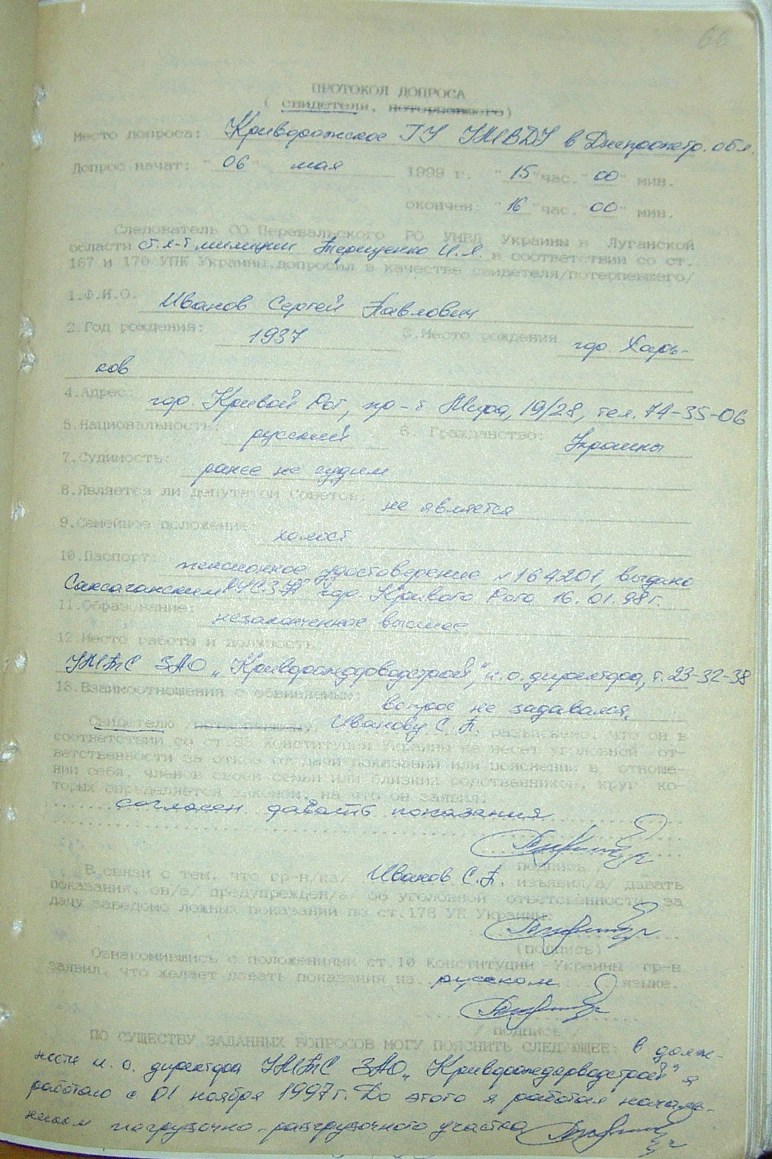 66
ПРОТОКОЛ ДОПРОСА
( свидетеля, потерпевшего)
Место допроса: Криворожское ГУ УМВДУ в Днепропетр. обл.
Допрос начат: "06" мая 1999 г. "15" час. "00" мин.
окончен: "16" час. "00" мин.
Следователь СО Перевальского РО УМВД Украины в Луганской
области ст. л-т милиции Терещенко И.А. в соответствии со ст.
167 и 170 УПК Украины, допросил в качестве свидетеля/потерпевшего/
1.Ф.И.О. Иванов Сергей Павлович
2.Год рождения: 1937 3.Место рождения гор. Харь-
ков
4.Адрес: гор. Кривой Рог, пр-т Мира, 19/28, тел. 74-35-06
5.Национальность: русский 6. Гражданство: Украины
7.Судимость: ранее не судим
8.Является ли депутатом Советов: не является
9.Семейное положение: холост
10.Паспорт: пенсионное удостоверение №164201, выдано
Саксаганским УСЗН гор. Кривого Рога 16.01.98г.
11.Образование: незаконченное высшее
12.Место работы и должность
УМТС ЗАО „Криворожагловодстрой", и.о. директора, т. 23-32-38
13.Взаимоотношения с обвиняемым: вопрос не задавался.
Свидетелю /потерпевшему/ Иванову С.П. разъяснено, что он в
соответствии со ст.63 Конституции Украины не несет уголовной от-
ветственности за отказ от дачи показаний или пояснений в отноше-
нии себя, членов своей семьи или близких родственников, круг ко-
торых определяется законом, на что он заявил:
согласен давать показания
/ подпись /
В связи с тем, что гр-н/ка/ Иванов С.П. изъявил/а/ давать
показания, он/а/ предупрежден/а/ об уголовной ответственности за
дачу заведомо ложных показаний по ст.178 УК Украины.
(подпись)
Ознакомившись с положениями ст.10 Конституции Украины гр-н
заявил, что желает давать показания на русском языке.
/ подпись /
ПО СУЩЕСТВУ ЗАДАННЫХ ВОПРОСОВ МОГУ ПОЯСНИТЬ СЛЕДУЮЩЕЕ: в долж-
ности и.о. директора УМТС ЗАО „ я
работаю с 01 ноября 1997г. До этого я работал началь-
ником погрузочно-разгрузочного участка